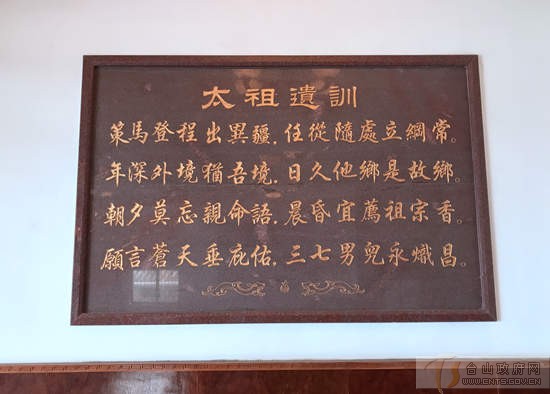 太祖遺訓
策馬登程出異疆，任從隨處立綱常。
年深外境猶吾境，日久他鄉是故鄉。
朝夕莫忘親命語，晨昏宜薦祖宗香。
願言蒼天垂庇佑，三七男兒永熾昌。
台山政府网
WWW.CNTS.GOV.CN